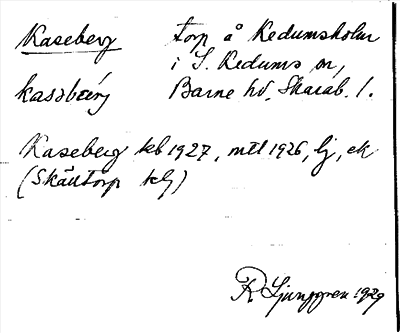 Kaseberg torp å Kedumskolan
i S. Kedums sn,
kassbärj Barne hd, Skarab. l.
Kaseberg kb 1927, mtl 1926, lj, ek
(Skåltorp)
R Ljunggren 1929